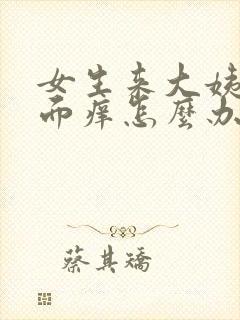 女生来大姨
而痒怎麼办
蔡其矯